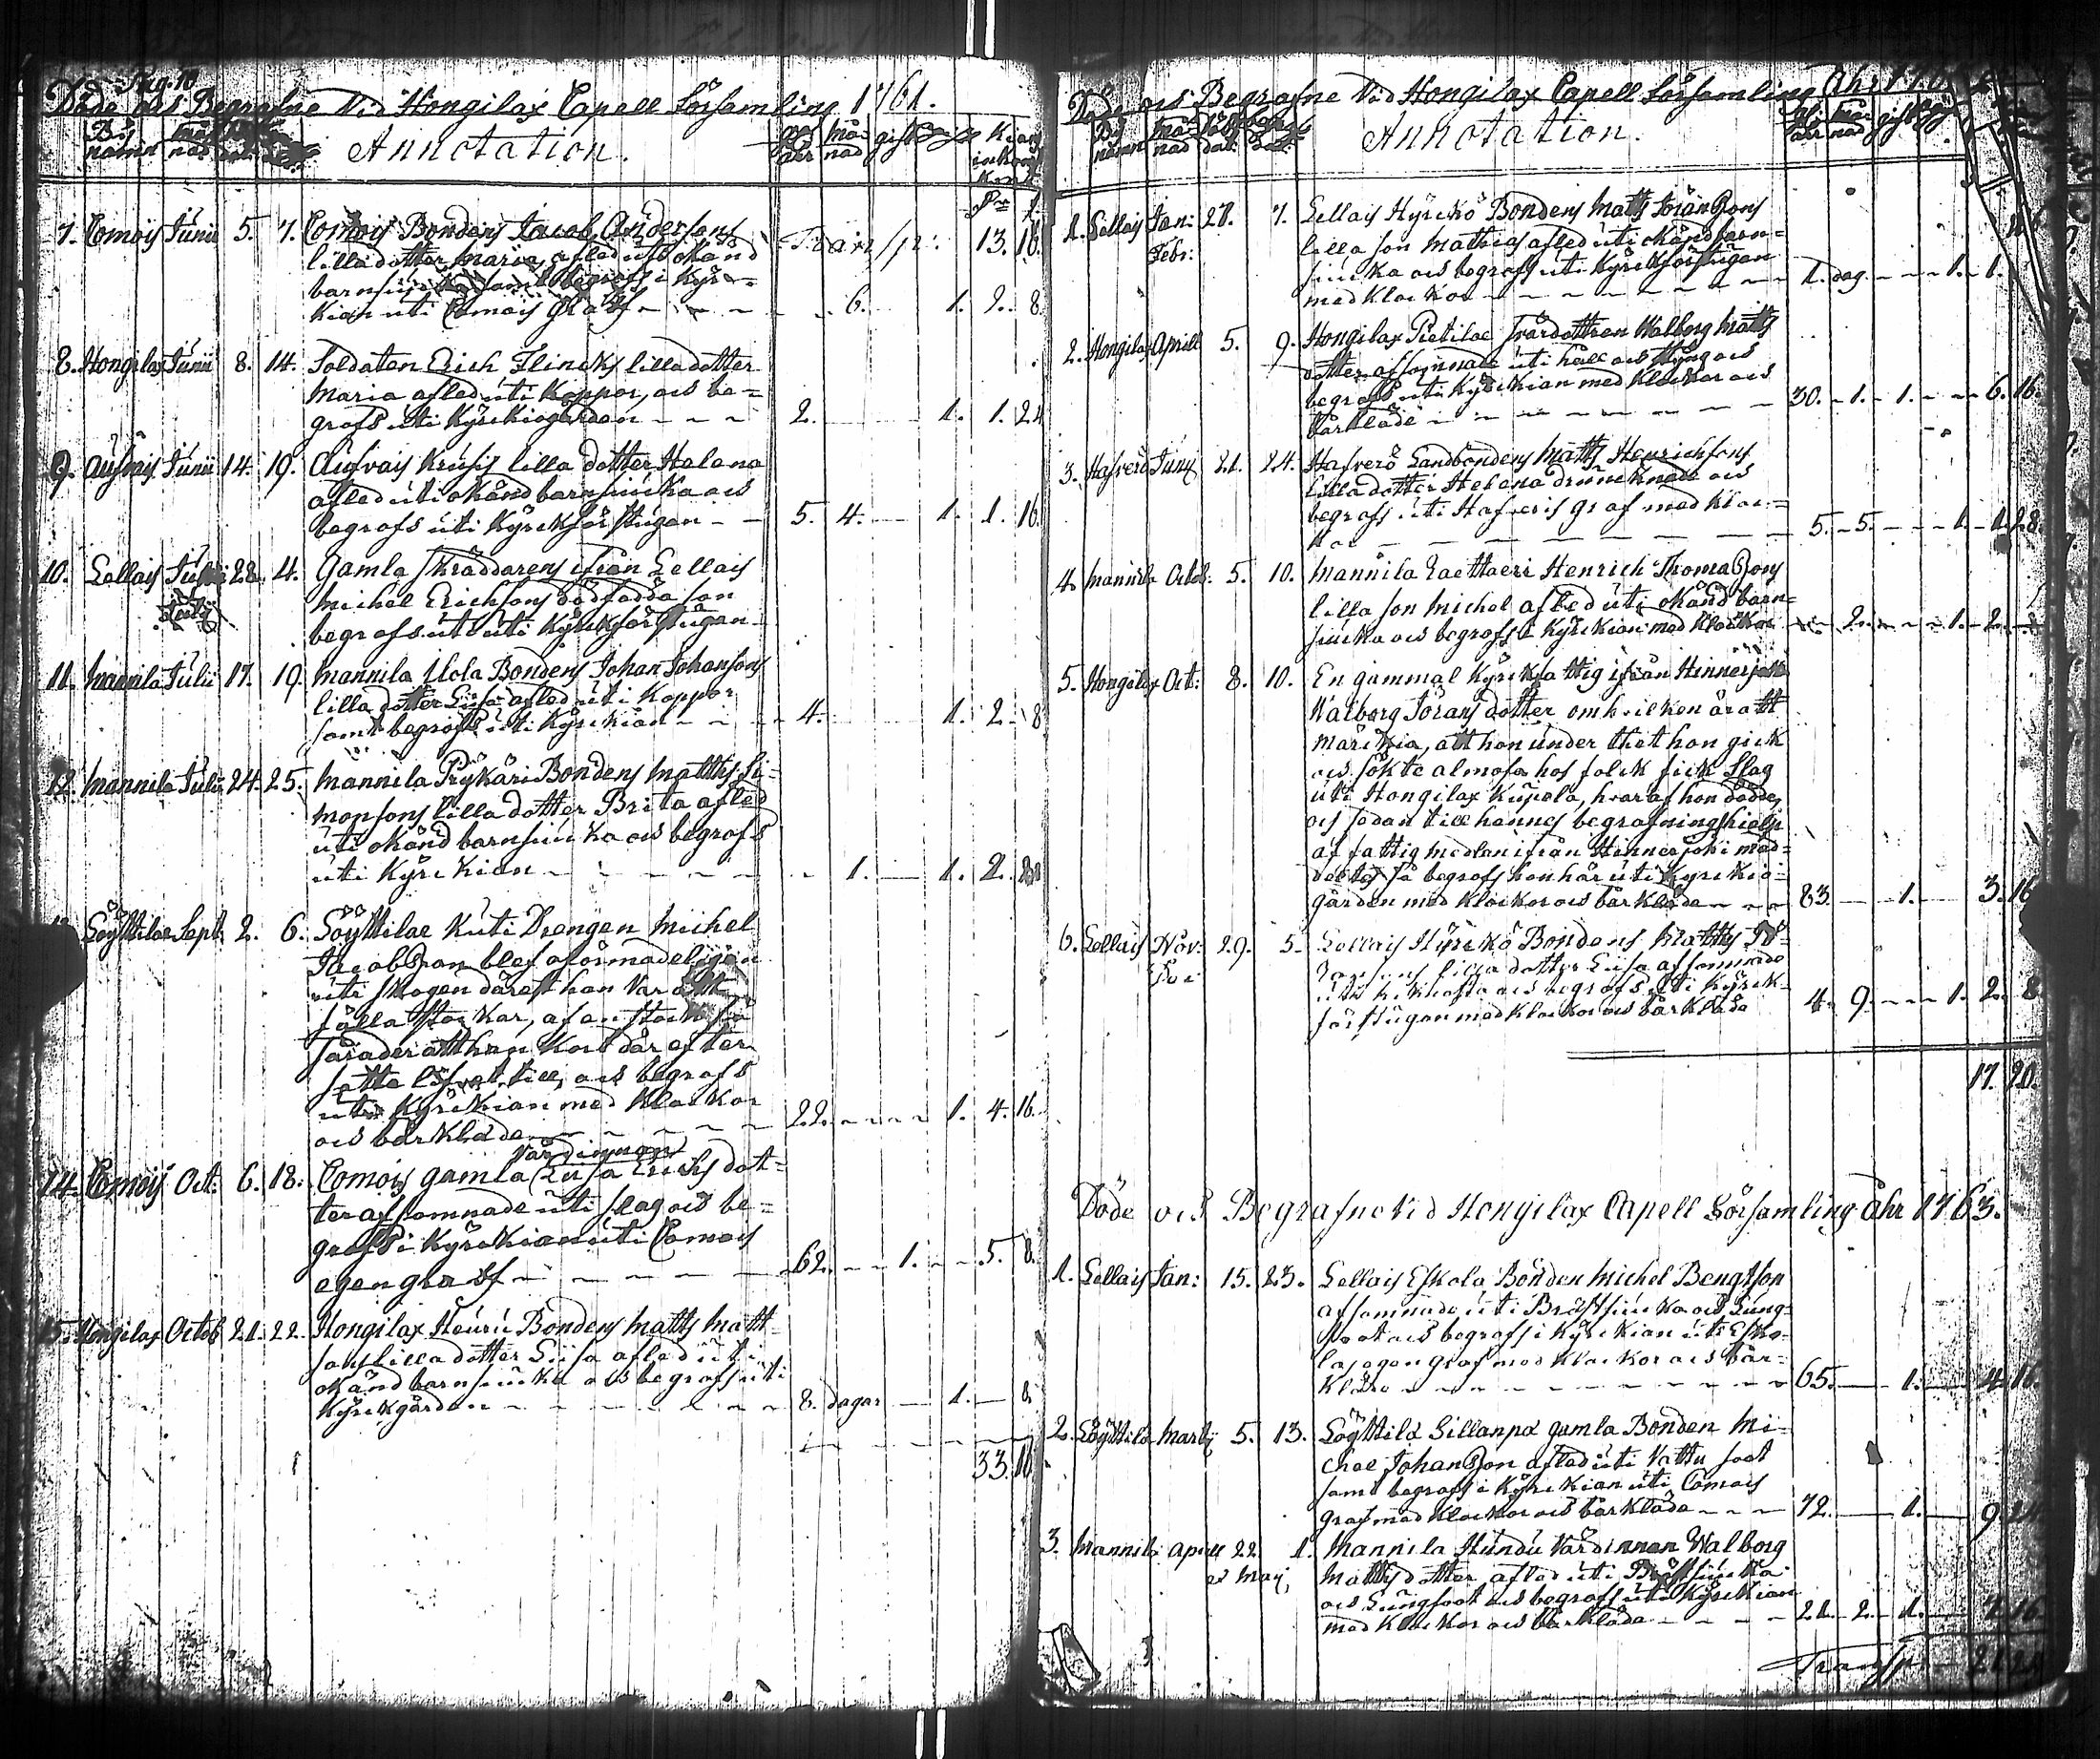 Pag. 10
Döde ock Begrafne Vid Hongilax Capell Församling 1761.
Bÿs namn må-nad Annotation. ahr må-nad gift
Transp: 13. 16.
7. Comois Junii 5. 7. Comois Bondens Jacob Andersons
lilla dotter Maria, afled uti okänd
barnsiuka samt begrofs i Kÿr-
kian uti Comois graf - - - 6. 1. 2. 8
8. Hongilax Junii 8. 14. Soldaten Erich Flincks lilla dotter
Maria afled uti Koppor, ock be-
grofs uti Kÿrckiogården - - - 2. 1. 1. 24
9. Aufvais Junii 14. 19. Aufvais Krusis lilla dotter Halena
afled uti okänd barnsiucka ock
begrofs uti Kÿrckförstugan - - 5. 4. 1. 1. 16.
10. Lellais 28. 4. Gamla Skräddarens ifrån Lellais
Julÿ Michel Erichsons dödfödda son
begrofs uti Kÿrckförstugan
11. Mannila Julii 17. 19. Mannila Ilola Bondens Johan Johansons
lilla dotter Lisa afled uti Koppor
samt begrofs uti Kÿrckian - - - 4. 1. 2. 8
12. Mannila Julii 24. 25. Mannila Prÿkäri Bondens Matths Si-
monsons lilla dotter Brita afled
uti okänd barnsiucka ock begrofs
uti Kÿrckian - - - - - 1. 1. 2.
13. Löÿttilae Sept. 2. 6. Löÿttilae Kuti Drengen Michel
Jacobsson blef oförmodeligen
uti skogen därest han Var att
fälla stockar, af en stock så
sårader att han Kort där efter
satte lifvet till, ock begrofs
uti Kÿrckian med Klockor
ock bårkläde - - - - - 22. 1. 4. 16.
Värdinnan
14. Comois Oct: 6. 18. Comois gamla Lisa Erichs dot-
ter afsomnade uti slag ock be-
grofs i Kÿrckian uti Comois
egen graf - - - - - 62. 1. 5. 8.
15. Hongilax Octob. 21. 22. Hongilax Heuru Bondens Matths Matt-
sons lilla dotter Lisa afled uti
okänd barnsiucka ock begrofs uti
Kÿrckgården - - - - - 8. dagar 1. 8.
33. 16.
Döde ock Begrafne Vid Hongilax Capell Församling Åhr
Bÿ namn må-nad Annotation. må-nad gift
1. Lellais Jan: 27. 7. Lellais Hÿrckö Bondens Matts Jöransons
Febr: lilla son Mathias afled uti okänd barn-
siucka ock begrofs uti Kÿrckförstugan
med Klockor - - - - - 1. dag - - - 1. 1.
2. Hongilax Aprill 5. 9. Hongilax Pietilae Svärdottren Walborg Matts
dotter afsomnade uti håll ock stÿng ock
begrofs uti Kÿrckian med Klockor ock
bårkläde - - - - - 30. 1. 1. 6. 16.
3. Hafverö Junÿ 21. 24. Hafverö Landbondens Matts Henrichsons
lilla dotter Helena drunknade ock
begrofs uti Hafveris graf med kloc-
kor - - - - - 5. 5. 1. 1. 28.
4. Mannila Octob: 5. 10. Mannila Laettaeri Henrich Thomassons
lilla son Michel afled uti okänd barn-
siucka ock begrofs i Kÿrckian med Klockor - 2. 1. 2.
5. Hongilax Oct: 8. 10. En gammal Kÿrckfattig ifrån Hinnerjoki
Walborg Jörans dotter om hvilken är att
märckia, att hon under thet hon gick
ock sökte almosa hos folck fick slag
uti Hongilax Kupola, hvaraf hon dödde,
ock sedan till hennes begrafning hielp
af fattig medlen ifrån Hinnerjoki med-
deltes så begrofs hon här uti Kÿrckio-
gården med Klockor ock bårkläde - - - 83. 1. 3. 16
6. Lellais Nov: 29. 5. Lellais Hÿrckö Bondens Matths Jö-
ransons lilla dotter Lisa afsomnade
uti kikhosta ock begrofs uti Kÿrck-
förstugan med Klockor ock bårkläde 4. 9. 1. 2. 8
17. 20.
Döde ock Begrafne Vid Hongilax Capell Församling Åhr 1763.
1. Lellais Jan: 15. 23. Lellais Eskola Bonden Michel Bengtson
afsomnade uti Bröstsiucka ock Lung-
soot ock begrofs i Kÿrckian uti Esko-
las egen graf med Klockor ock bår-
kläde - - - - - 65. 1. 4. 16.
2. Löÿttilä Martÿ 5. 13. Löÿttilä Sillanpä gamla Bonden Mi-
chel Johansson afled uti Vattu soot
samt begrofs i Kÿrckian uti Comois
graf med Klockor ock bårkläde - - - 72. 1. 9. 24
3. Mannila Aprill 22 1. Mannila Hundu Värdinnan Walborg
et Maÿ, Matths dotter afled uti Bröstsiucka
ock Lungsoot ock begrofs uti Kÿrckian
med Klockor ock bårkläde - - - - 21. 2. 1. 7. 16
Transp: